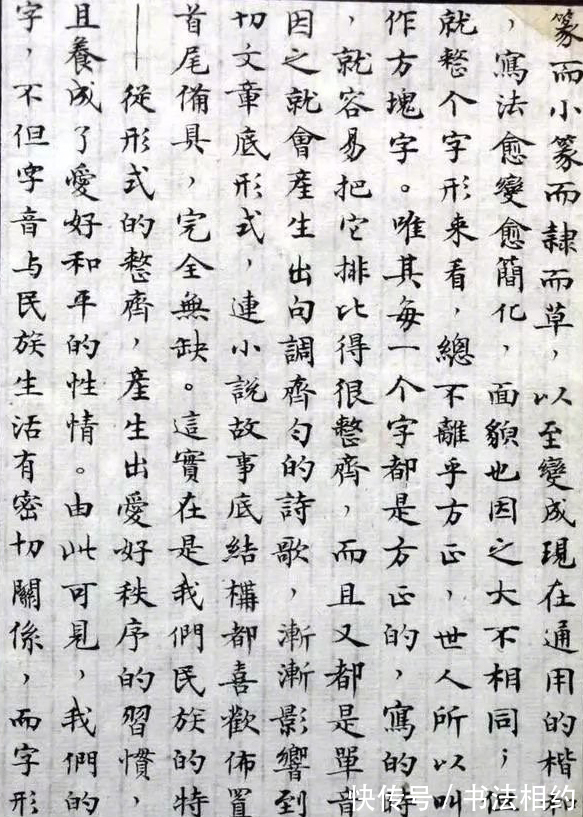 篆而小篆而隸而草，以至變成現在通用的楷
，寫法愈變愈簡化，面貌也因之大不相同；
就整个字形來看，總不離乎方正，世人所以叫
作方塊字。唯其每一个字都是方正的，寫的時
，就容易把它排比得很整齊，而且又都是單音
因之就會產生出句調齊勻的詩歌，漸漸影響到
切文章底形式，連小說故事底結構都喜歡佈置
首尾備具，完全無缺。這實在是我們民族的特
——從形式的整齊，產生出愛好秩序的習慣，
且養成了愛好和平的性情。由此可見，我們的
字，不但字音與民族生活有密切關係，而字形
快传号/书法相约